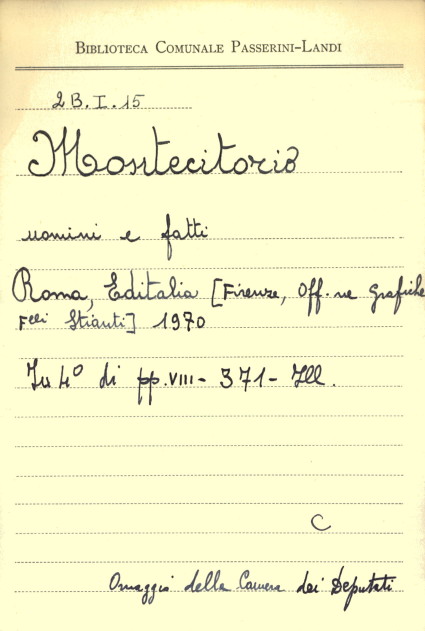 BIBLIOTECA COMUNALE PASSERINI-LANDI
2B.I.15
Montecitorio
uomini e fatti
Roma, Editalia [Firenze, Off.ne Grafiche
F.lli Stianti] 1970
In 4° di pp. VIII - 371 - Ill.
C
Omaggio della Camera dei Deputati